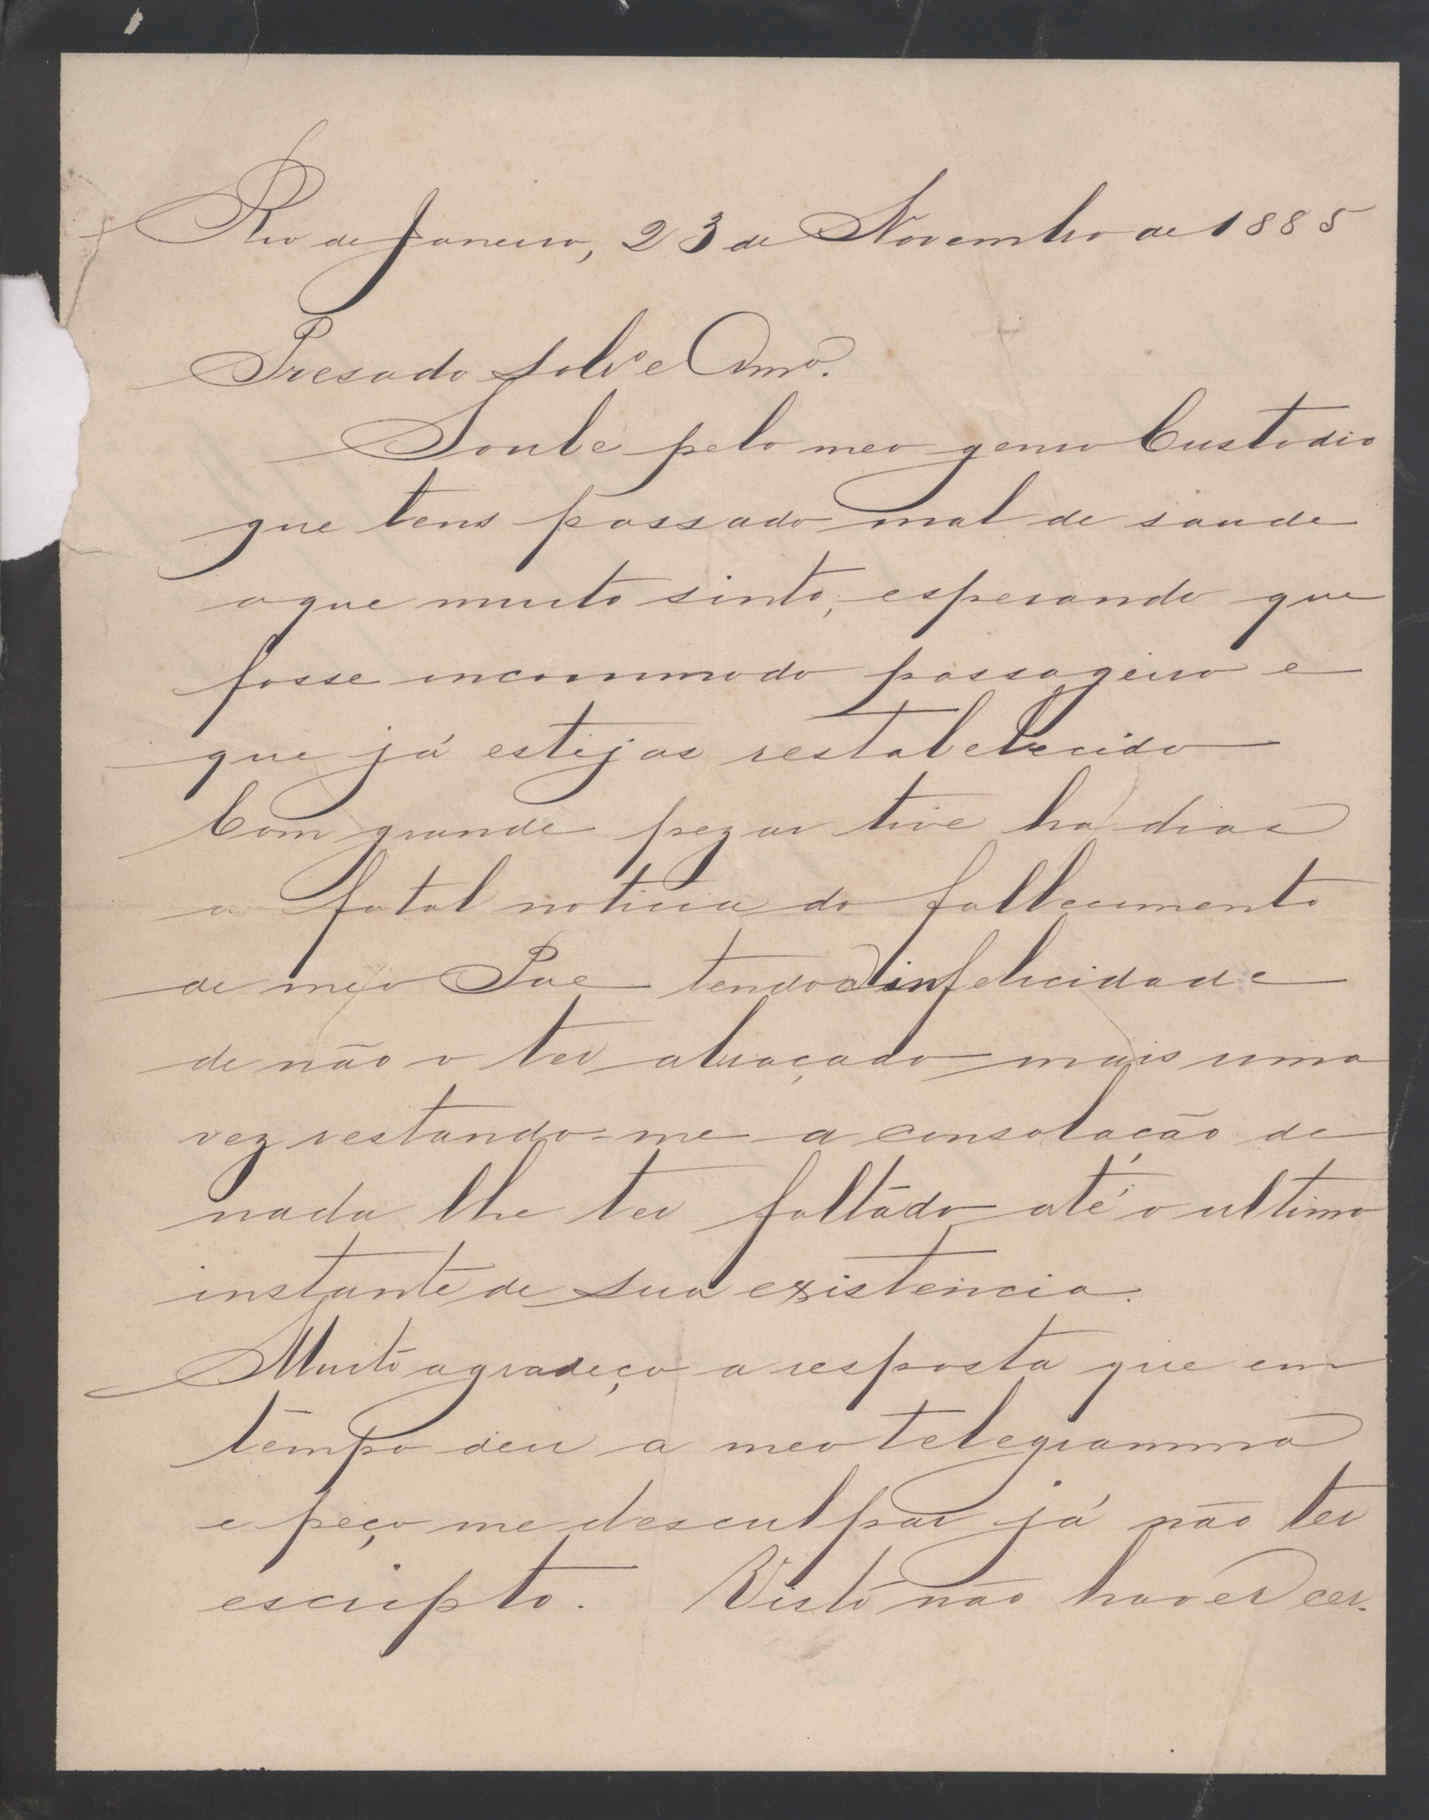 Rio de Janeiro, 23 de Novembro de 1885
Presado Sobr.º e Am.º
Soube pelo meo genro Custodio
que tens passado mal de saude
o que muito sinto, esperando que
fosse incommodo passageiro e
que já estejas restabelecido
Com grande pezar tive ha dias
a fatal noticia do fallecimento
de meo Pae tendo a infelicidade
de não o ter abraçado mais uma
vez restando-me a consolação de
nada lhe ter faltado até o ultimo
instante de sua existencia.
Muito agradeço a resposta que em
tempo deu a meo telegramma
e peço me desculpar já não ter
escripto. Visto não haver cer-